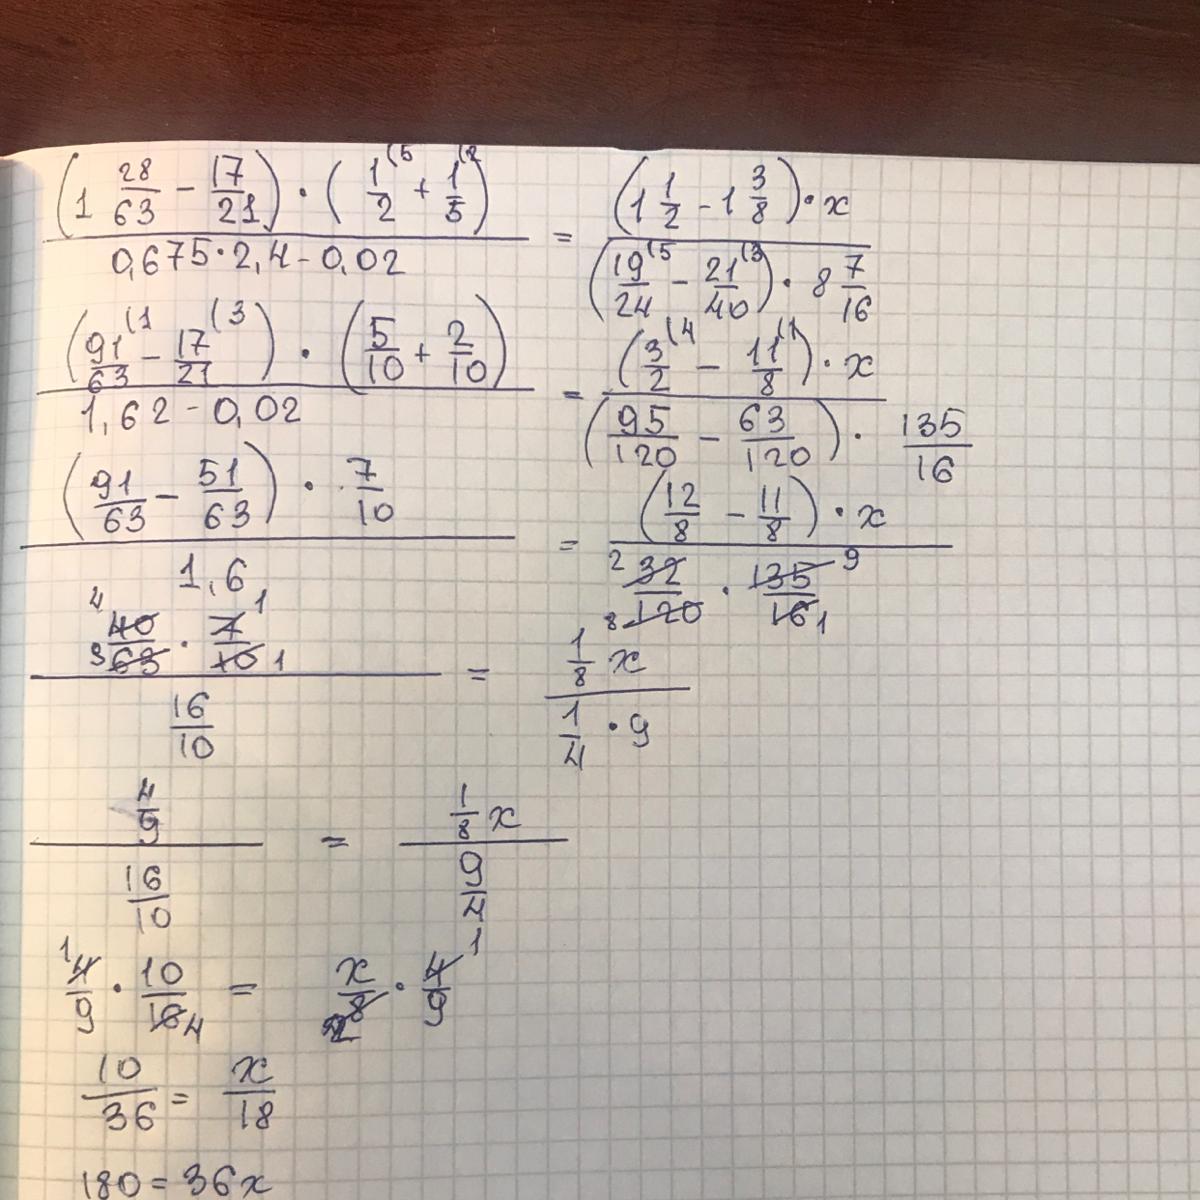 (1 28/63 - 17/21) · (1/2 (5 + 1/5 (2) / 0,675·2,4-0,02 = (1 1/2 - 1 3/8)·x / (19/24 (5 - 21/40 (3) · 8 7/16
(91/63 (1 - 17/21 (3) · (5/10 + 2/10) / 1,62-0,02 = (3/2 (4 - 11/8 (1)·x / (95/120 - 63/120) · 135/16
(91/63 - 51/63) · 7/10 / 1,6 = (12/8 - 11/8)·x / 2 32/120 8 · 135/16 9 1
4 40/63 9 · 7/10 1 1 / 16/10 = 1/8 x / 1/4 · 9
4/9 / 16/10 = 1/8 x / 9/4
1 4/9 · 10/16 4 = x/8 2 · 4/9 1
10/36 = x/18
180=36x